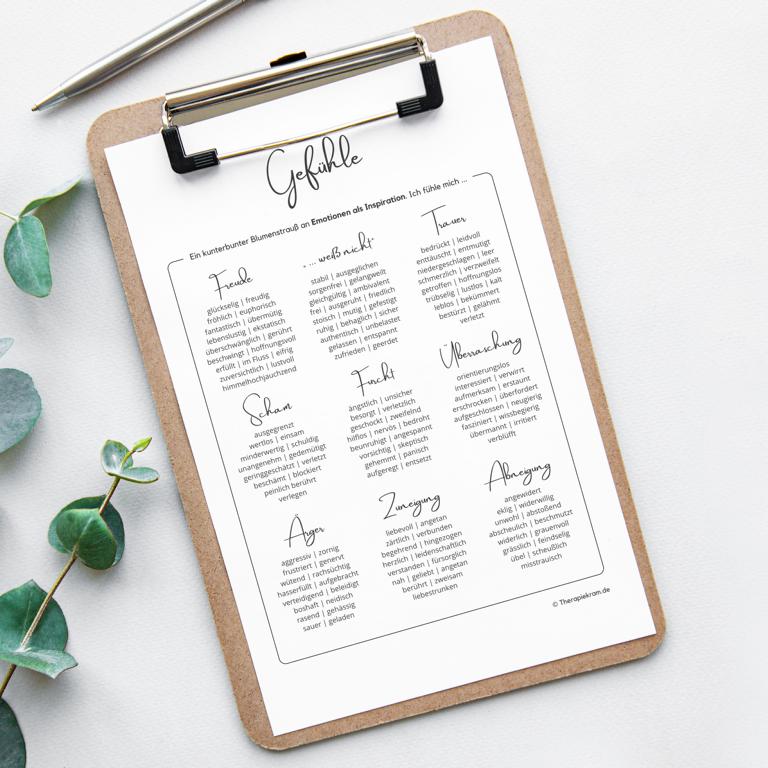 Gefühle
Ein kunterbunter Blumenstrauß an Emotionen als Inspiration. Ich fühle mich ...
Freude
glückselig | freudig
fröhlich | euphorisch
fantastisch | übermütig
lebenslustig | ekstatisch
überschwänglich | gerührt
beschwingt | hoffnungsvoll
erfüllt | im Fluss | eifrig
zuversichtlich | lustvoll
himmelhochjauchzend
„ ... weiß nicht“
stabil | ausgeglichen
sorgenfrei | gelangweilt
gleichgültig | ambivalent
frei | ausgeruht | friedlich
stoisch | mutig | gefestigt
ruhig | behaglich | sicher
authentisch | unbelastet
gelassen | entspannt
zufrieden | geerdet
Trauer
bedrückt | leidvoll
enttäuscht | entmutigt
niedergeschlagen | leer
schmerzlich | verzweifelt
getroffen | hoffnungslos
trübselig | lustlos | kalt
leblos | bekümmert
bestürzt | gelähmt
verletzt
Scham
ausgegrenzt
wertlos | einsam
minderwertig | schuldig
unangenehm | gedemütigt
geringgeschätzt | verletzt
beschämt | blockiert
peinlich berührt
verlegen
Furcht
ängstlich | unsicher
besorgt | verletzlich
geschockt | zweifelnd
hilflos | nervös | bedroht
beunruhigt | angespannt
vorsichtig | skeptisch
gehemmt | panisch
aufgeregt | entsetzt
Überraschung
orientierungslos
interessiert | verwirrt
aufmerksam | erstaunt
erschrocken | überfordert
aufgeschlossen | neugierig
fasziniert | wissbegierig
übermannt | irritiert
verblüfft
Ärger
aggressiv | zornig
frustriert | genervt
wütend | rachsüchtig
hasserfüllt | aufgebracht
verteidigend | beleidigt
boshaft | neidisch
rasend | gehässig
sauer | geladen
Zuneigung
liebevoll | angetan
zärtlich | verbunden
begehrend | hingezogen
herzlich | leidenschaftlich
verstanden | fürsorglich
nah | geliebt | angetan
berührt | zweisam
liebestrunken
Abneigung
angewidert
eklig | widerwillig
unwohl | abstoßend
abscheulich | beschmutzt
widerlich | grauenvoll
grässlich | feindselig
übel | scheußlich
misstrauisch
© Therapiekram.de